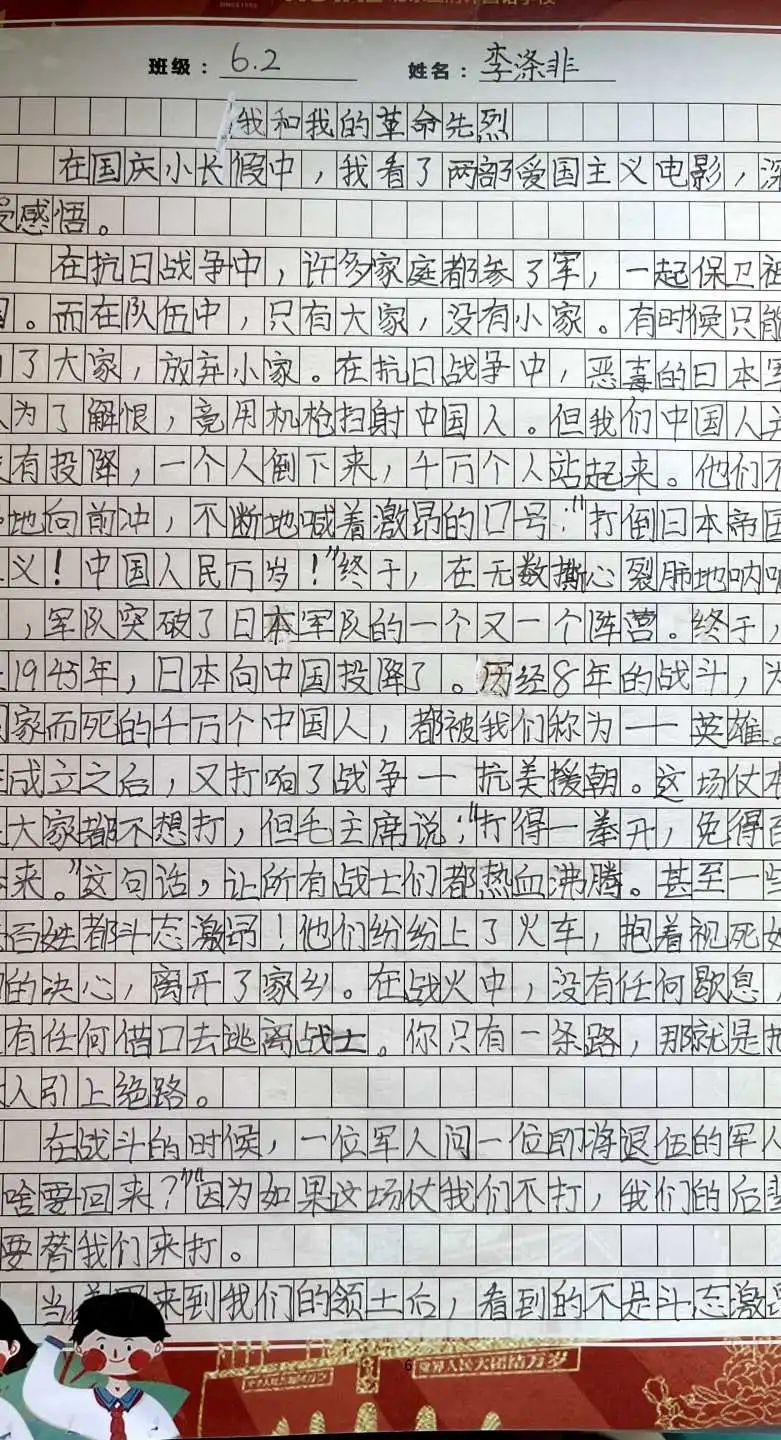 SINCE1952
班级：6.2 姓名：李涤非
我和我的革命先烈
在国庆小长假中，我看了两部爱国主义电影，深
受感悟。
在抗日战争中，许多家庭都参了军，一起保卫祖
国。而在队伍中，只有大家，没有小家。有时候只能
了大家，放弃小家。在抗日战争中，恶毒的日本军
人为了解恨，竟用机枪扫射中国人。但我们中国人并
没有投降，一个人倒下来，千万个人站起来。他们不
地向前冲，不断地喊着激昂的口号：“打倒日本帝国
义！中国人民万岁！”终于，在无数撕心裂肺地呐喊
，军队突破了日本军队的一个又一个阵营。终于，
在1945年，日本向中国投降了。历经8年的战斗，为
国家而死的千万个中国人，都被我们称为一一英雄。
成立之后，又打响了战争一抗美援朝。这场仗本
大家都不想打，但毛主席说：“打得一拳开，免得百
来。”这句话，让所有战士们都热血沸腾。甚至一些
百姓都斗态激昂！他们纷纷上了火车，抱着视死如
的决心，离开了家乡。在战火中，没有任何歇息，
有任何借口去逃离战士。你只有一条路，那就是把
人引上绝路。
在战斗的时候，一位军人问一位即将退伍的军人
啥要回来？”“因为如果这场仗我们不打，我们的后辈
要替我们来打。
当 来到我们的领土后，看到的不是斗态激
6
世界人民大团结万岁